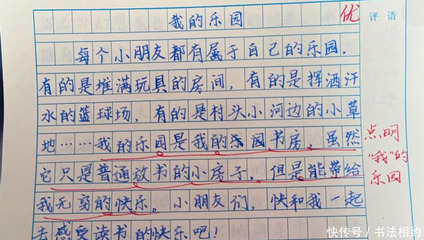 我的乐园
优
评语
每个小朋友都有属于自己的乐园，
有的是堆满玩具的房间，有的是挥洒汗
水的篮球场，有的是村头小河边的小草
地……我的乐园是我的乐园书房。虽然
它只是普通放书的小房子，但是能带给
我无穷的快乐。小朋友们，快和我一起
去感受读书的快乐吧！
点明
"我"的
乐园
快传号／书法相约